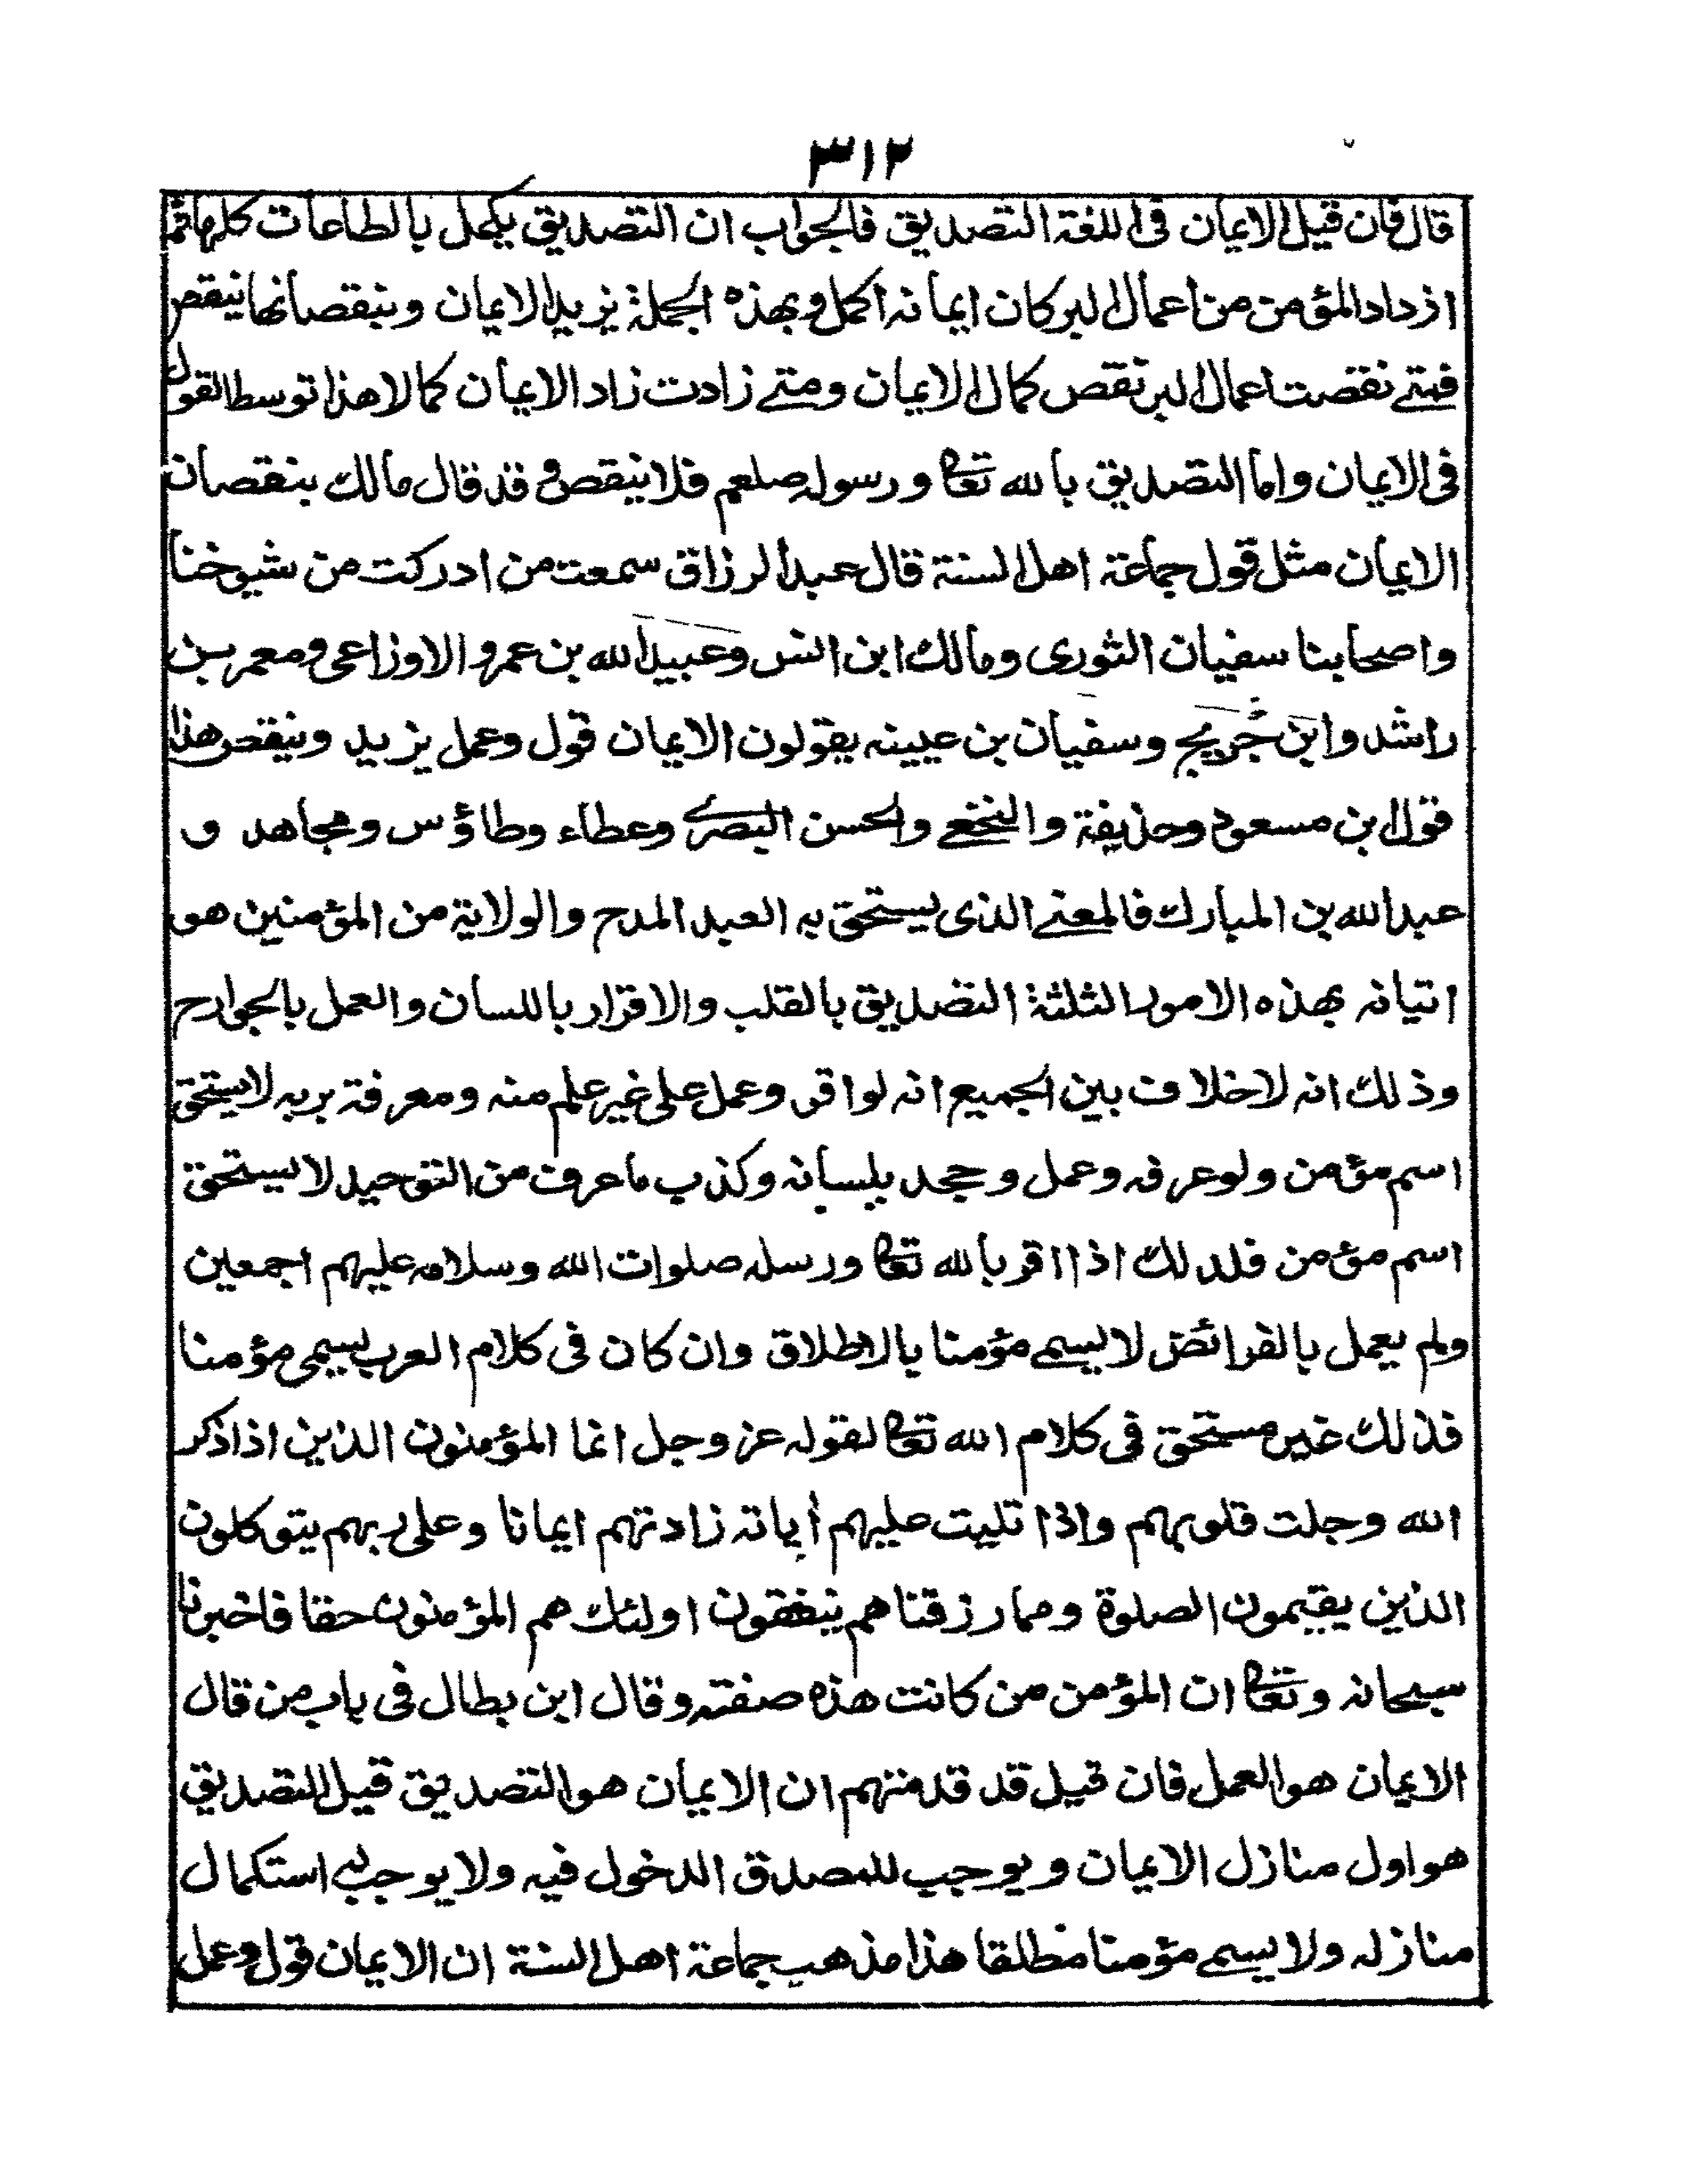 ٣١٢
قال فان قيل الايمان فى اللغة التصديق فالجواب ان التصديق يكمل بالطاعات كلها فما
ازداد المؤمن من اعمال البر كان ايمانه اكمل وبهذه الجملة يزيد الايمان وبنقصانها ينقص
فمتے نقصت اعمال البر نقص كمال الايمان ومتے زادت زاد الايمان كمالا هذا توسط القول
فى الايمان واما التصديق بالله تعا ورسوله صلعم فلا ينقص وقد قال مالك بنقصان
الايمان مثل قول جماعة اهل السنة قال عبد الرزاق سمعت من ادركت من شيوخنا
واصحابنا سفيان الثورى ومالك ابن انس وعبيد الله بن عمر و الاوزاعى ومعمر بن
راشد وابن جُريج وسفيان بن عيينه يقولون الايمان قول وعمل يزيد وينقص هذا
قول ابن مسعود وحذيفة والنخعے والحسن البصرے وعطاء وطاؤس ومجاهد و
عبد الله بن المبارك فالمعنے الذى يستحق به العبد المدح والولاية من المؤمنين هو
اتيانه بهذه الامور الثلثة التصديق بالقلب والاقرار باللسان والعمل بالجوارح
وذلك انه لا خلاف بين الجميع انه لو اقر وعمل على غير علم منه ومعرفة بربه لا يستحق
اسم مؤمن ولو عرفه وعمل وجحد بلسانه وكذب ما عرف من التوحيد لا يستحق
اسم مؤمن فلذلك اذا اقر بالله تعا ورسله صلوات الله وسلامه عليهم اجمعين
ولم يعمل بالفرائض لا يسمے مؤمنا بالاطلاق وان كان فى كلام العرب يسمى مؤمنا
فذلك غير مستحق فى كلام الله تعا لقوله عز وجل انما المؤمنون الذين اذا ذكر
الله وجلت قلوبهم واذا تليت عليهم أياته زادتهم ايمانا وعلى ربهم يتوكلون
الذين يقيمون الصلوة ومما رزقناهم ينفقون اولئك هم المؤمنون حقا فاخبرنا
سبحانه وتعا ان المؤمن من كانت هذه صفته وقال ابن بطال فى باب من قال
الايمان هو العمل فان قيل قد قدمتهم ان الايمان هو التصديق قيل التصديق
هو اول منازل الايمان ويوجب للمصدق الدخول فيه ولا يوجب له استكمال
منازله ولا يسمے مؤمنا مطلقا هذا مذهب جماعة اهل السنة ان الايمان قول وعمل